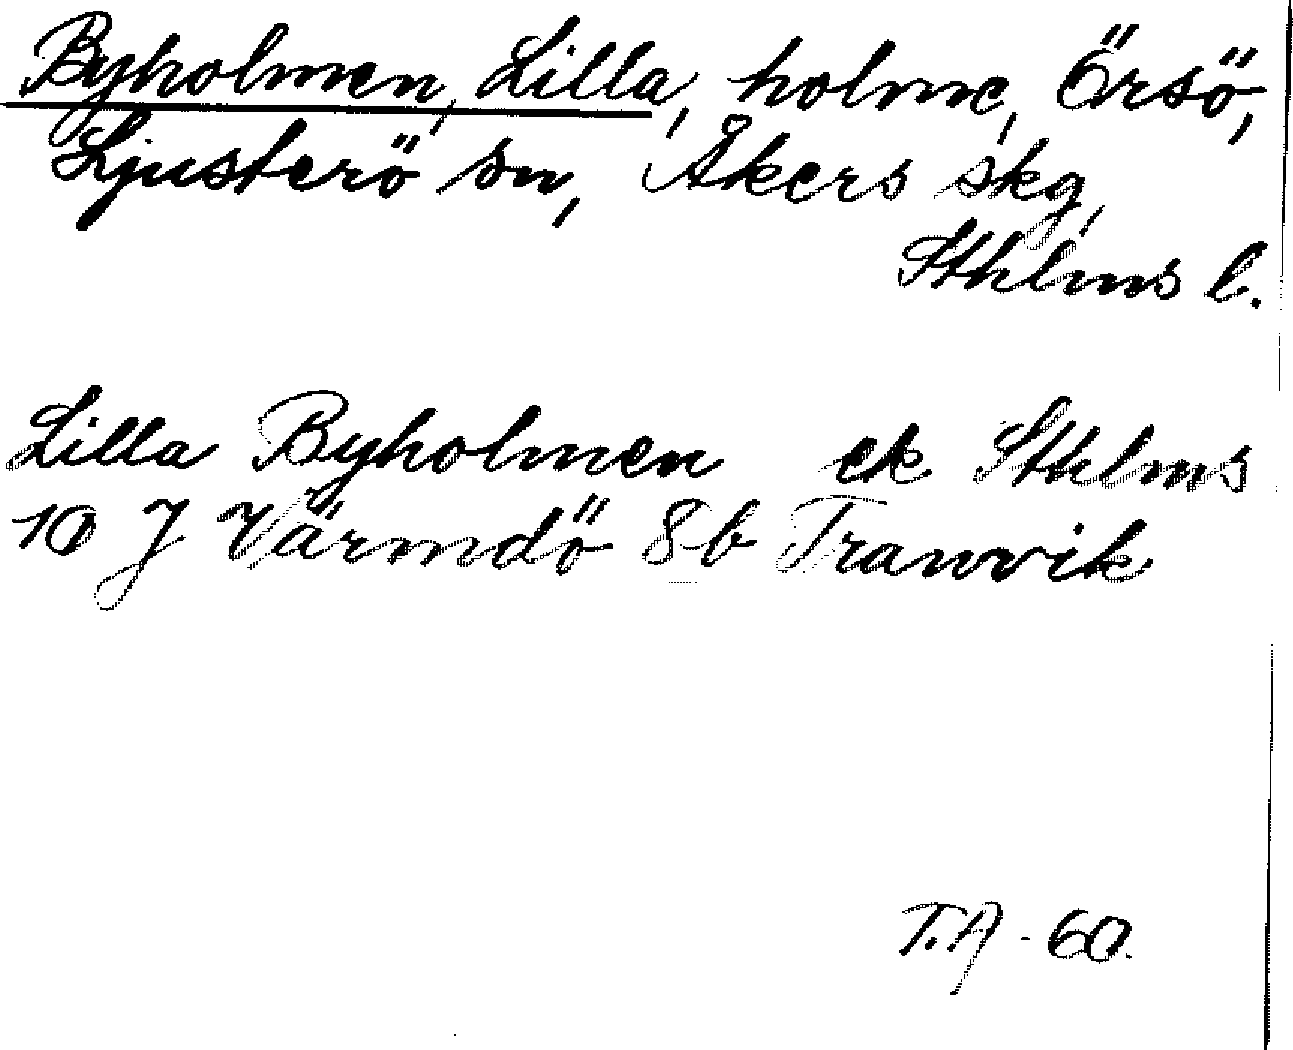 Byholmen, Lilla, holme, Örsö,
Ljusterö sn, Åkers skg,
Sthlms l.
Lilla Byholmen ek Sthlms
10 J Värmdö 8b Tranvik
T.A - 60.